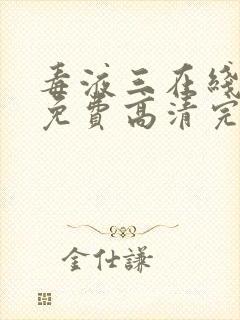 毒液三在线
免费高清完
金仕謙